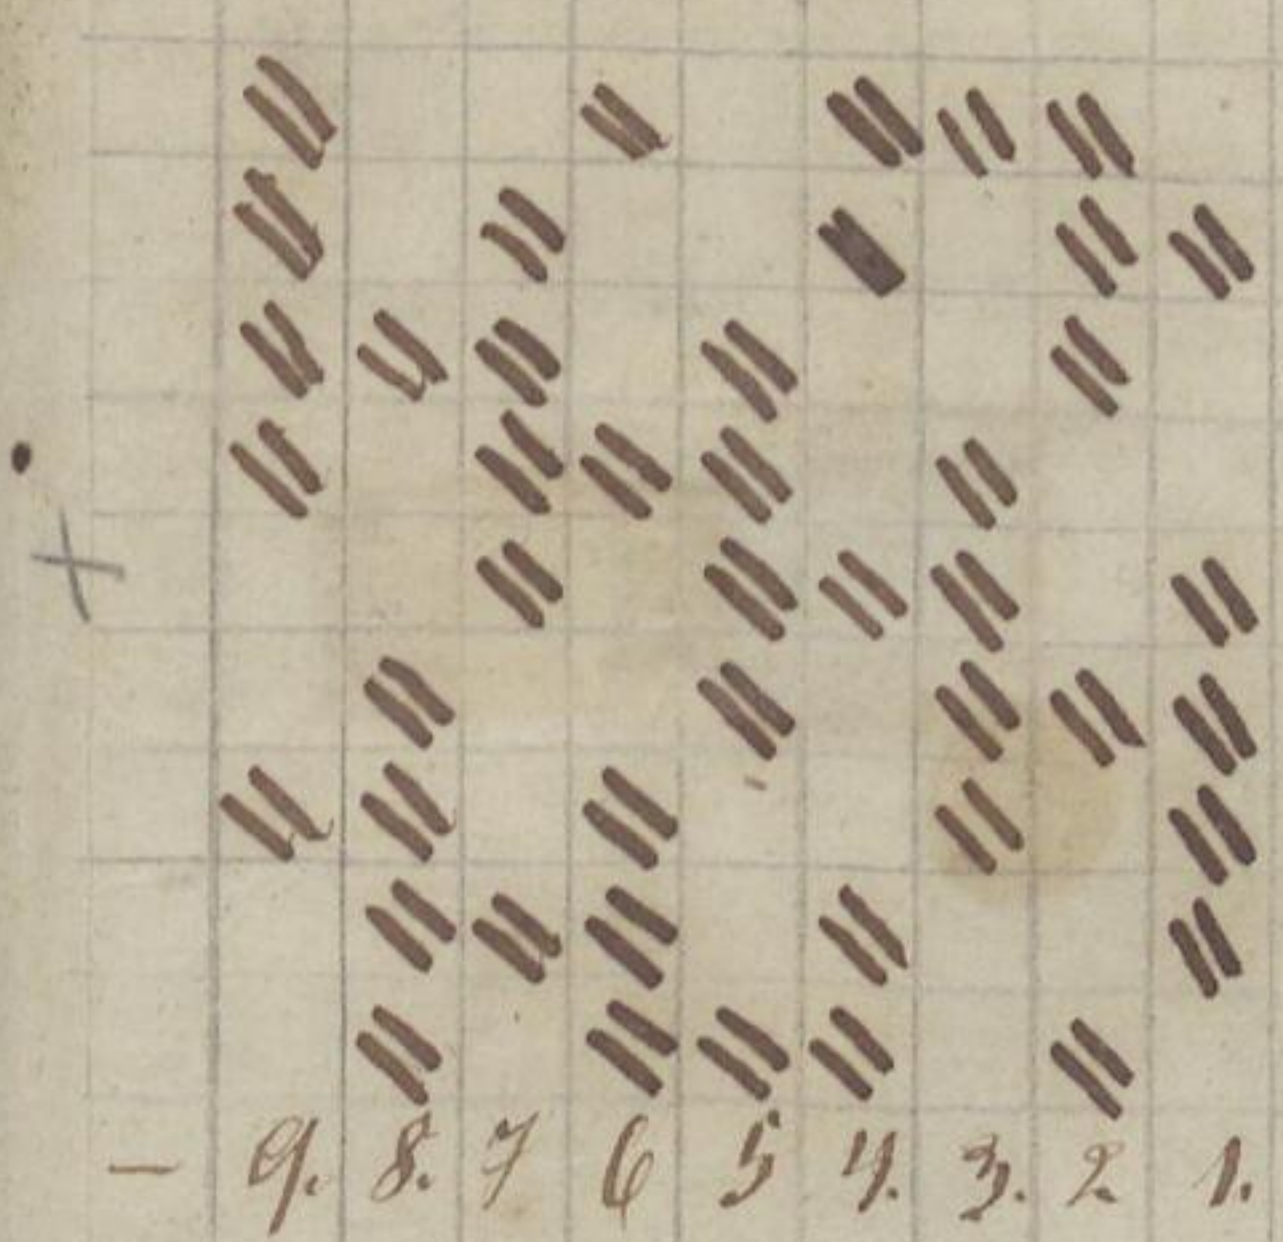 — 9. 8. 7 6 5 4. 3. 2. 1.